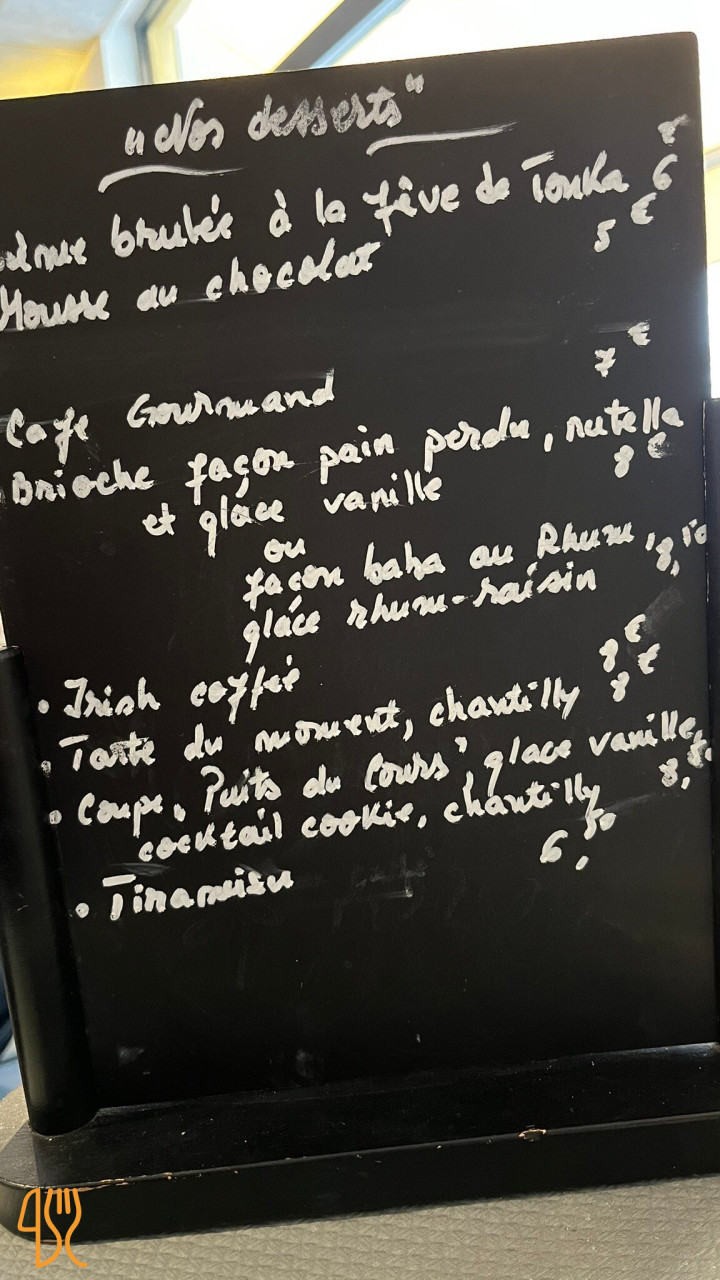 "Nos desserts"
brulée à la fêve de Tonka 6 €
Mousse au chocolat 5 €
Cafe Gourmand 7 €
Brioche façon pain perdu, nutella
et glace vanille 8 €
ou
façon baba au Rhum, 8,50
glace rhum-raisin
• Irish coffee 8 €
• Tarte du moment, chantilly 8 €
• Coupe "Puits du Cours", glace vanille,
cocktail cookie, chantilly 8,50
• Tiramisu 6,50